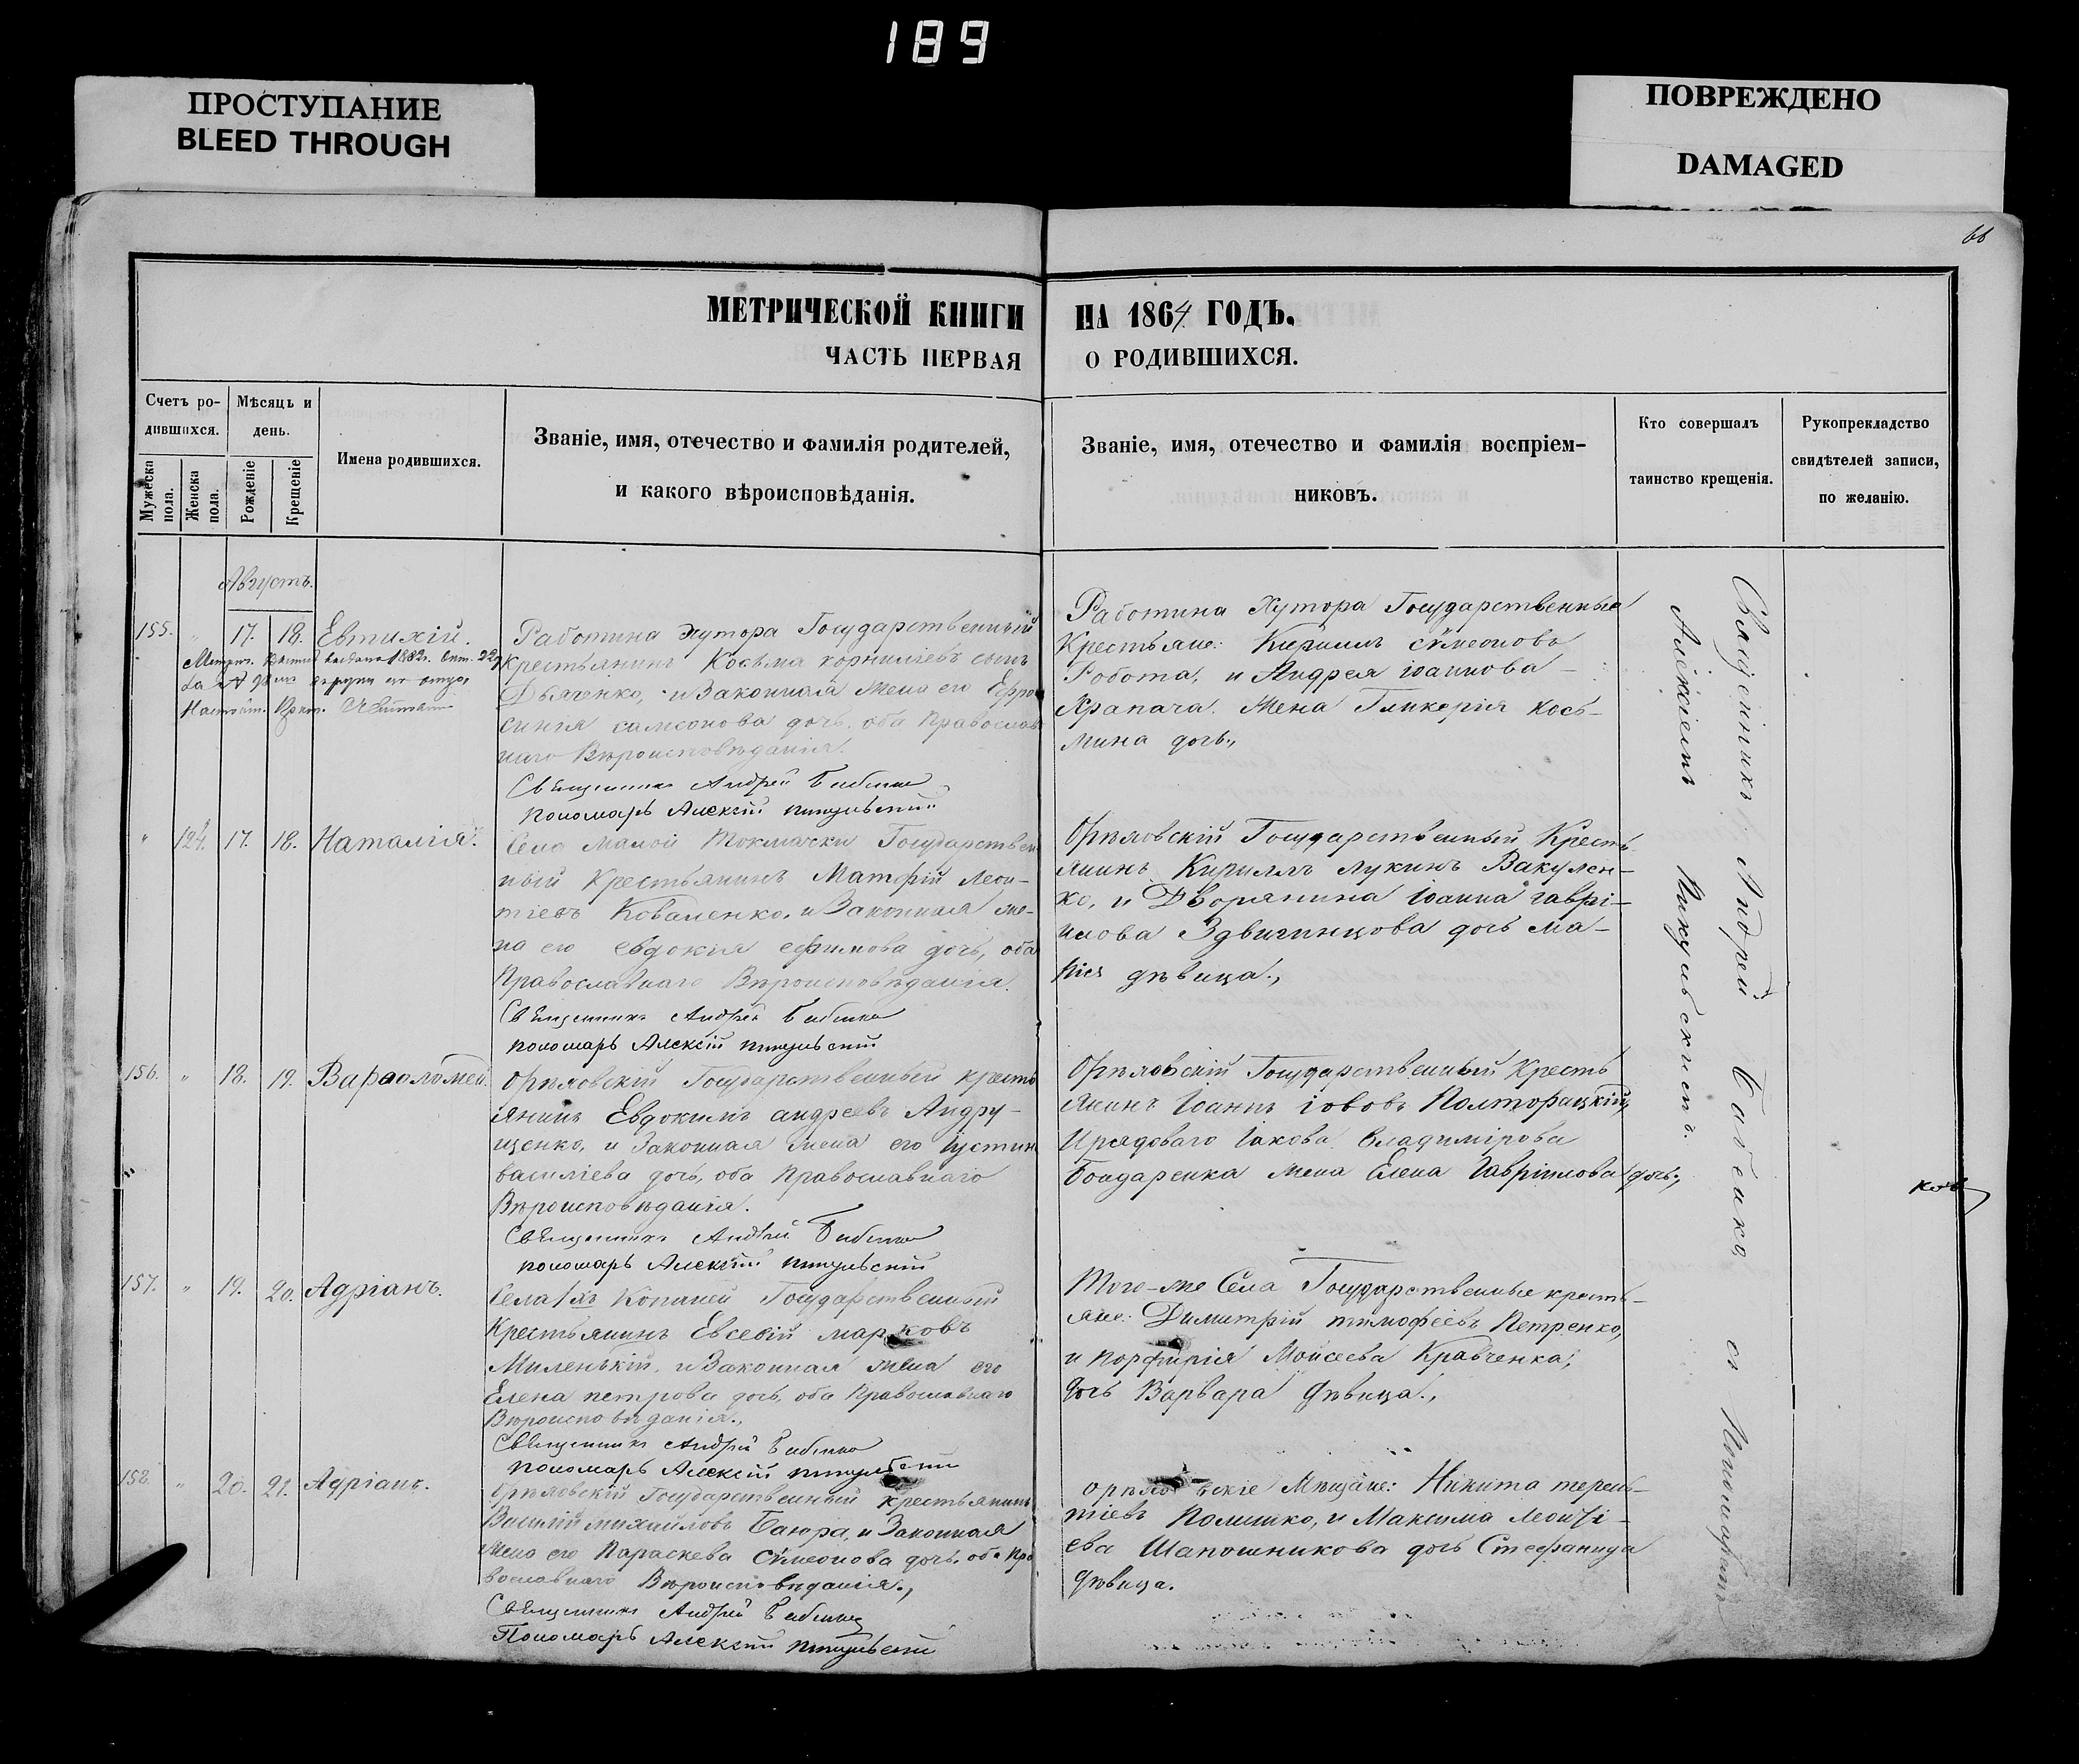 189
ПРОСТУПАНИЕ
BLEED THROUGH
ПОВРЕЖДЕНО
DAMAGED
66
МЕТРИЧЕСКОЙ КНИГИ НА 1864 ГОДЪ.
ЧАСТЬ ПЕРВАЯ О РОДИВШИХСЯ.
Счетъ ро-
дившихся.
Мужеска пола.
Женска пола.
Мѣсяцъ и
день.
Рожденіе
Крещеніе
Имена родившихся.
Званіе, имя, отечество и фамилія родителей,
и какого вѣроисповѣданія.
Званіе, имя, отечество и фамилія воспріем-
никовъ.
Кто совершалъ
таинство крещенія.
Рукопрекладство
свидѣтелей записи,
по желанію.
Августъ.
155. " 17. 18. Евтихій.
Работина хутора Государственный
Крестьянинъ Косьма корниліевъ сынъ
Дьяченко, и Законная жена его Ефро
синія самсонова дочь, оба Православ
наго Вѣроисповѣданія.
Священникъ Андрей
пономарь Алексій
Работина Хутора Государственные
Крестьяне: Кириллъ сѵмеоновъ
Робота, и Андрея іоаннова
Храпача. Жена Гликерія Кось-
мина дочь.,
" 124. 17. 18. Наталія.
Села Малой Токмачки Государствен
ный Крестьянинъ Матфій Леон-
тіевъ Коваленко, и Законная же-
на его евдокія ефимова дочь, оба
Православнаго Вѣроисповѣданія.
Священникъ Андрей
пономарь Алексій
Орѣховскій Государственный Кресть
янинъ Кириллъ лукинъ Вакулен-
ко, и Дворянина іоанна гаврі-
илова Здвигинцова дочь Ма-
рія дѣвица.,
156. " 18. 19. Варфоломей.
Орѣховскій Государственный кресть
янинъ Евдокимъ андреевъ Андру-
щенко, и Законная жена его Іустин
василіева дочь, оба Православнаго
Вѣроисповѣданія.
Священникъ Андрей
пономарь Алексій
Орѣховскій Государственный Кресть
янинъ Іоаннъ іововъ Полторацкій,
И рядоваго Іакова Владимірова
Бондаренка жена Елена Гавріилова дочь.,
157. " 19. 20. Адріанъ.
Села Копаней Государственный
Крестьянинъ Евсевій марковъ
Миленькій, и Законная жена его
Елена петрова дочь, оба Православнаго
Вѣроисповѣданія.,
Священникъ Андрей
пономарь Алексій
Того-же Села Государственные кресть-
яне: Димитрій тимофеевъ Петренко,
и порфирія Моисеева Кравченка,
дочь Варвара дѣвица.,
158. " 20. 21. Адріанъ.
Орѣховскій Государственный крестьянинъ
Василій михайловъ Баюра, и Законная
жена его Параскева Сѵмеонова дочь, оба Пра
вославнаго Вѣроисповѣданія.,
Священникъ Андрей
Пономарь Алексій
Мѣщане: Никита терен-
тіевъ Полишко, и Максима Леонті-
ева Шапошникова дочь Стефанида
дѣвица.
Священникъ Андрей съ Пономаремъ
Алексіемъ